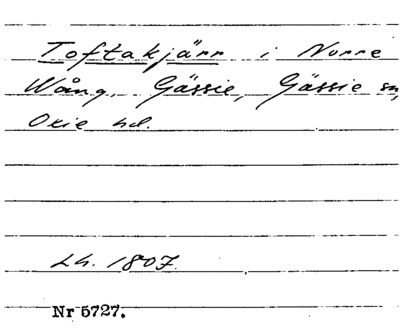 Toftakjärr i Norre
Wång. Gässie, Gässie sn,
Oxie hd.
Lh. 1807.
Nr 5727.